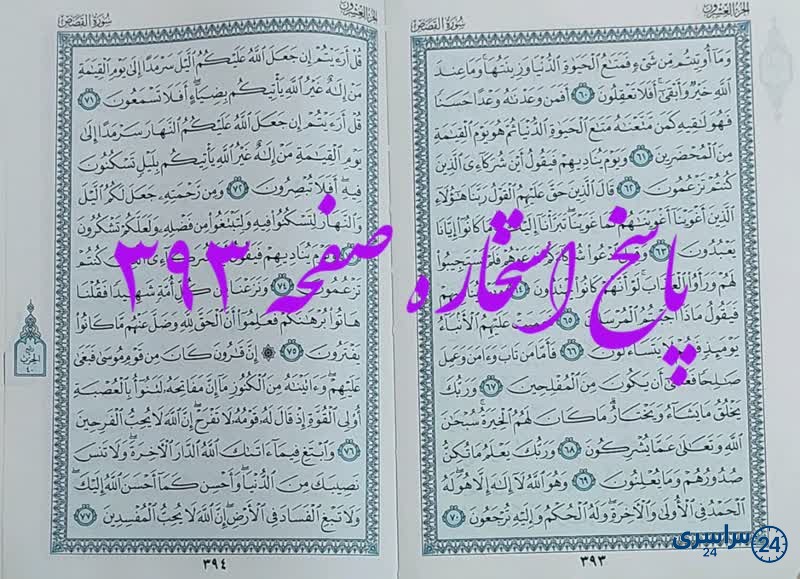 الجزء العشرون
سورة القصص
وَمَا أُوتِيتُم مِّن شَىْءٍ فَمَتَٰعُ ٱلْحَيَوٰةِ ٱلدُّنْيَا وَزِينَتُهَا ۚ وَمَا عِندَ
ٱللَّهِ خَيْرٌ وَأَبْقَىٰٓ ۚ أَفَلَا تَعْقِلُونَ ٦٠ أَفَمَن وَعَدْنَٰهُ وَعْدًا حَسَنًا
فَهُوَ لَٰقِيهِ كَمَن مَّتَّعْنَٰهُ مَتَٰعَ ٱلْحَيَوٰةِ ٱلدُّنْيَا ثُمَّ هُوَ يَوْمَ ٱلْقِيَٰمَةِ
مِنَ ٱلْمُحْضَرِينَ ٦١ وَيَوْمَ يُنَادِيهِمْ فَيَقُولُ أَيْنَ شُرَكَآءِىَ ٱلَّذِينَ
كُنتُمْ تَزْعُمُونَ ٦٢ قَالَ ٱلَّذِينَ حَقَّ عَلَيْهِمُ ٱلْقَوْلُ رَبَّنَا هَٰٓؤُلَآءِ
ٱلَّذِينَ أَغْوَيْنَآ أَغْوَيْنَٰهُمْ كَمَا غَوَيْنَا ۖ تَبَرَّأْنَآ إِلَيْكَ ۖ مَا كَانُوٓا۟ إِيَّانَا
يَعْبُدُونَ ٦٣ وَقِيلَ ٱدْعُوا۟ شُرَكَآءَكُمْ فَدَعَوْهُمْ فَلَمْ يَسْتَجِيبُوا۟
لَهُمْ وَرَأَوُا۟ ٱلْعَذَابَ ۚ لَوْ أَنَّهُمْ كَانُوا۟ يَهْتَدُونَ ٦٤ وَيَوْمَ يُنَادِيهِمْ
فَيَقُولُ مَاذَآ أَجَبْتُمُ ٱلْمُرْسَلِينَ ٦٥ فَعَمِيَتْ عَلَيْهِمُ ٱلْأَنۢبَآءُ
يَوْمَئِذٍ فَهُمْ لَا يَتَسَآءَلُونَ ٦٦ فَأَمَّا مَن تَابَ وَءَامَنَ وَعَمِلَ
صَٰلِحًا فَعَسَىٰٓ أَن يَكُونَ مِنَ ٱلْمُفْلِحِينَ ٦٧ وَرَبُّكَ
يَخْلُقُ مَا يَشَآءُ وَيَخْتَارُ ۗ مَا كَانَ لَهُمُ ٱلْخِيَرَةُ ۚ سُبْحَٰنَ
ٱللَّهِ وَتَعَٰلَىٰ عَمَّا يُشْرِكُونَ ٦٨ وَرَبُّكَ يَعْلَمُ مَا تُكِنُّ
صُدُورُهُمْ وَمَا يُعْلِنُونَ ٦٩ وَهُوَ ٱللَّهُ لَآ إِلَٰهَ إِلَّا هُوَ ۖ لَهُ
ٱلْحَمْدُ فِى ٱلْأُولَىٰ وَٱلْءَاخِرَةِ ۖ وَلَهُ ٱلْحُكْمُ وَإِلَيْهِ تُرْجَعُونَ ٧٠
٣٩٣
الجزء العشرون
سورة القصص
قُلْ أَرَءَيْتُمْ إِن جَعَلَ ٱللَّهُ عَلَيْكُمُ ٱلَّيْلَ سَرْمَدًا إِلَىٰ يَوْمِ ٱلْقِيَٰمَةِ
مَنْ إِلَٰهٌ غَيْرُ ٱللَّهِ يَأْتِيكُم بِضِيَآءٍ ۖ أَفَلَا تَسْمَعُونَ ٧١
قُلْ أَرَءَيْتُمْ إِن جَعَلَ ٱللَّهُ عَلَيْكُمُ ٱلنَّهَارَ سَرْمَدًا إِلَىٰ
يَوْمِ ٱلْقِيَٰمَةِ مَنْ إِلَٰهٌ غَيْرُ ٱللَّهِ يَأْتِيكُم بِلَيْلٍ تَسْكُنُونَ
فِيهِ ۖ أَفَلَا تُبْصِرُونَ ٧٢ وَمِن رَّحْمَتِهِ جَعَلَ لَكُمُ ٱلَّيْلَ
وَٱلنَّهَارَ لِتَسْكُنُوا۟ فِيهِ وَلِتَبْتَغُوا۟ مِن فَضْلِهِ وَلَعَلَّكُمْ تَشْكُرُونَ
وَيَوْمَ يُنَادِيهِمْ فَيَقُولُ أَيْنَ شُرَكَآءِىَ ٱلَّذِينَ كُنتُمْ
تَزْعُمُونَ ٧٤ وَنَزَعْنَا مِن كُلِّ أُمَّةٍ شَهِيدًا فَقُلْنَا
هَاتُوا۟ بُرْهَٰنَكُمْ فَعَلِمُوٓا۟ أَنَّ ٱلْحَقَّ لِلَّهِ وَضَلَّ عَنْهُم مَّا كَانُوا۟
يَفْتَرُونَ ٧٥ ۞ إِنَّ قَٰرُونَ كَانَ مِن قَوْمِ مُوسَىٰ فَبَغَىٰ
عَلَيْهِمْ ۖ وَءَاتَيْنَٰهُ مِنَ ٱلْكُنُوزِ مَآ إِنَّ مَفَاتِحَهُ لَتَنُوٓأُ بِٱلْعُصْبَةِ
أُو۟لِى ٱلْقُوَّةِ إِذْ قَالَ لَهُ قَوْمُهُ لَا تَفْرَحْ ۖ إِنَّ ٱللَّهَ لَا يُحِبُّ ٱلْفَرِحِينَ
٧٦ وَٱبْتَغِ فِيمَآ ءَاتَىٰكَ ٱللَّهُ ٱلدَّارَ ٱلْءَاخِرَةَ ۖ وَلَا تَنسَ
نَصِيبَكَ مِنَ ٱلدُّنْيَا ۖ وَأَحْسِن كَمَآ أَحْسَنَ ٱللَّهُ إِلَيْكَ ۖ
وَلَا تَبْغِ ٱلْفَسَادَ فِى ٱلْأَرْضِ ۖ إِنَّ ٱللَّهَ لَا يُحِبُّ ٱلْمُفْسِدِينَ ٧٧
٣٩٤
پاسخ استخاره صفحه ۳۹۳
سراسری 24
24